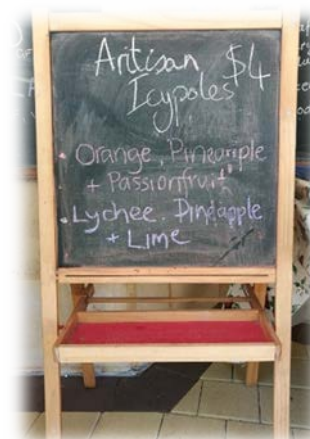 Artisan $4
Icypoles
• Orange, Pineapple
+ Passionfruit
• Lychee. Pineapple
+ Lime